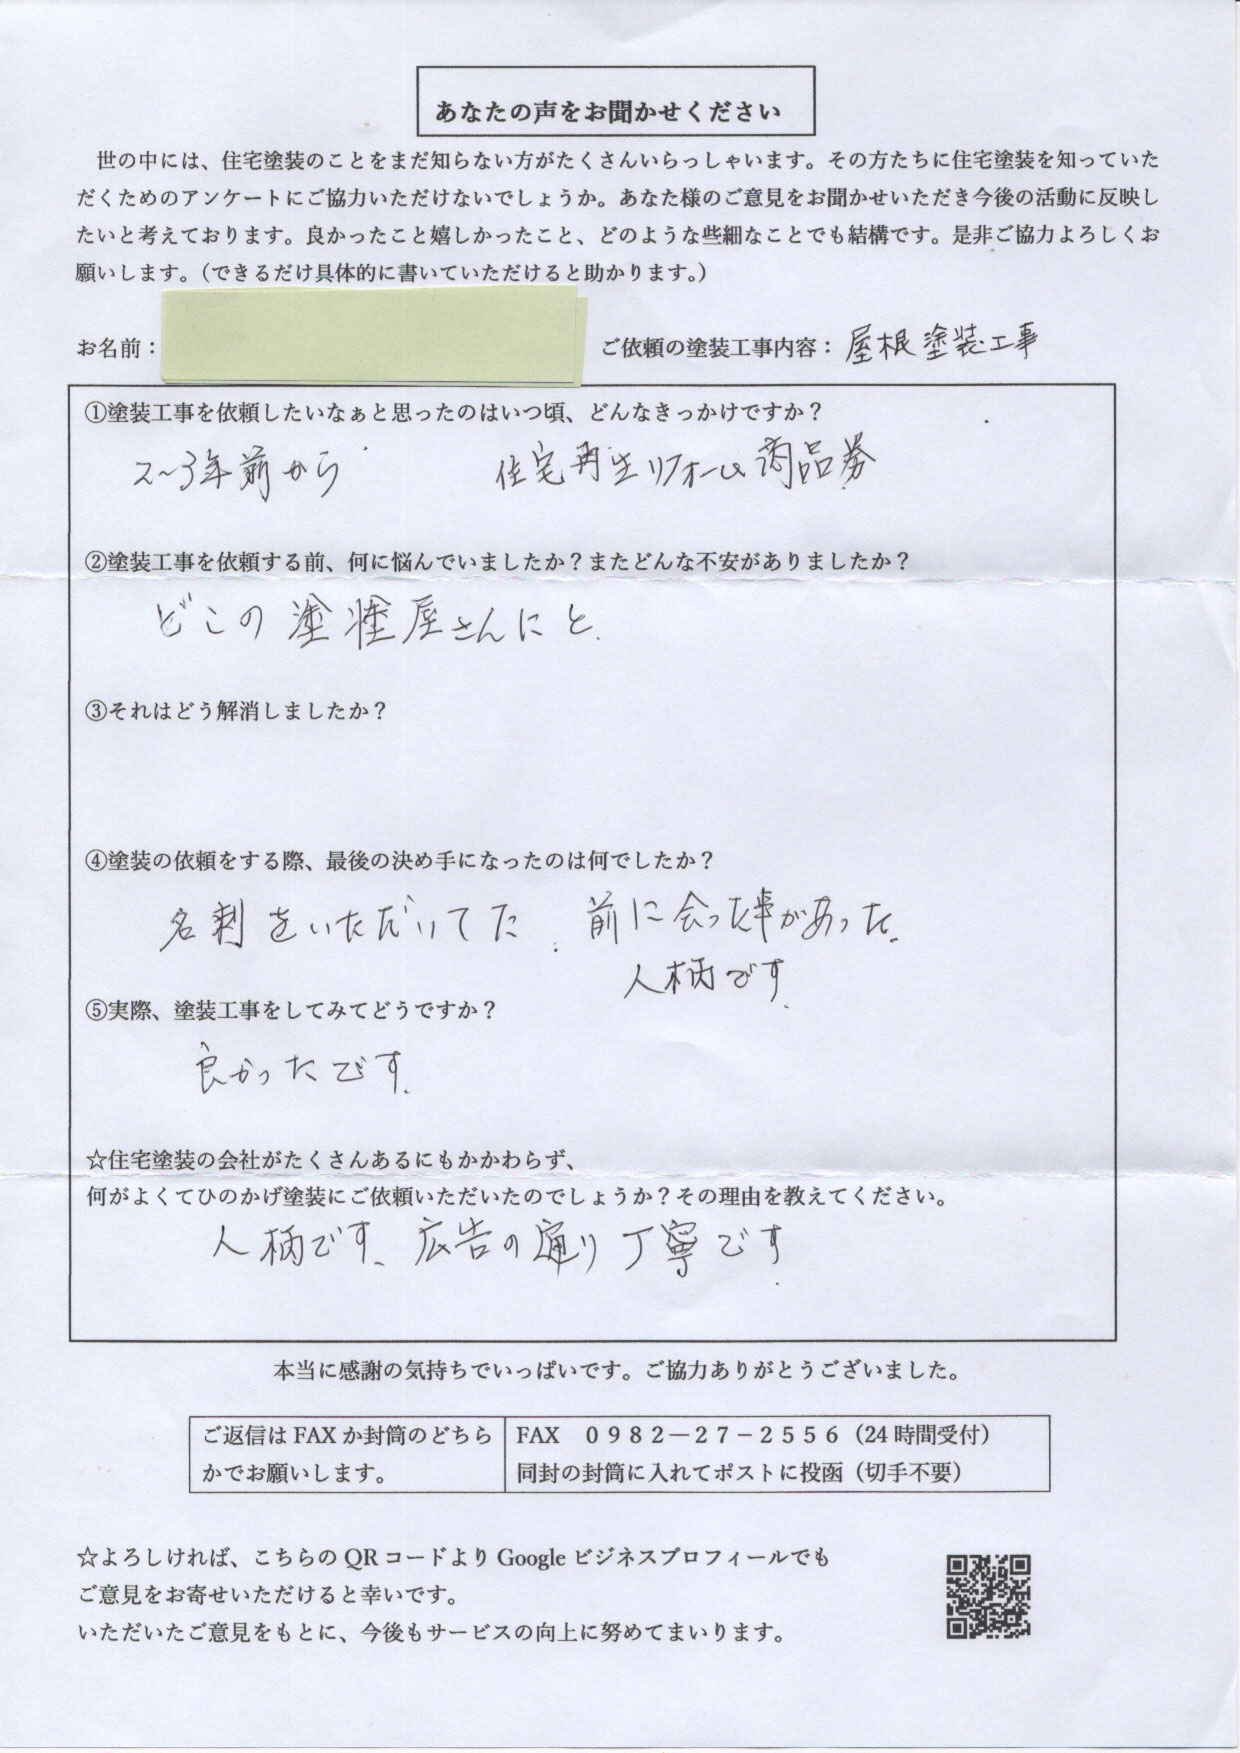 あなたの声をお聞かせください
世の中には、住宅塗装のことをまだ知らない方がたくさんいらっしゃいます。その方たちに住宅塗装を知っていた
だくためのアンケートにご協力いただけないでしょうか。あなた様のご意見をお聞かせいただき今後の活動に反映し
たいと考えております。良かったこと嬉しかったこと、どのような些細なことでも結構です。是非ご協力よろしくお
願いします。（できるだけ具体的に書いていただけると助かります。）
お名前： ご依頼の塗装工事内容：屋根塗装工事
①塗装工事を依頼したいなぁと思ったのはいつ頃、どんなきっかけですか？
2〜3年前から 住宅再生リフォーム商品券
②塗装工事を依頼する前、何に悩んでいましたか？またどんな不安がありましたか？
どこの塗装屋さんにと.
③それはどう解消しましたか？
④塗装の依頼をする際、最後の決め手になったのは何でしたか？
名刺をいただいてた. 前に会った事があった.
人柄です.
⑤実際、塗装工事をしてみてどうですか？
良かったです.
☆住宅塗装の会社がたくさんあるにもかかわらず、
何がよくてひのかげ塗装にご依頼いただいたのでしょうか？その理由を教えてください。
人柄です、広告の通り丁寧です.
本当に感謝の気持ちでいっぱいです。ご協力ありがとうございました。
ご返信は FAX か封筒のどちら FAX ０９８２－２７－２５５６（24 時間受付）
かでお願いします。 同封の封筒に入れてポストに投函（切手不要）
☆よろしければ、こちらの QR コードより Google ビジネスプロフィールでも
ご意見をお寄せいただけると幸いです。
いただいたご意見をもとに、今後もサービスの向上に努めてまいります。